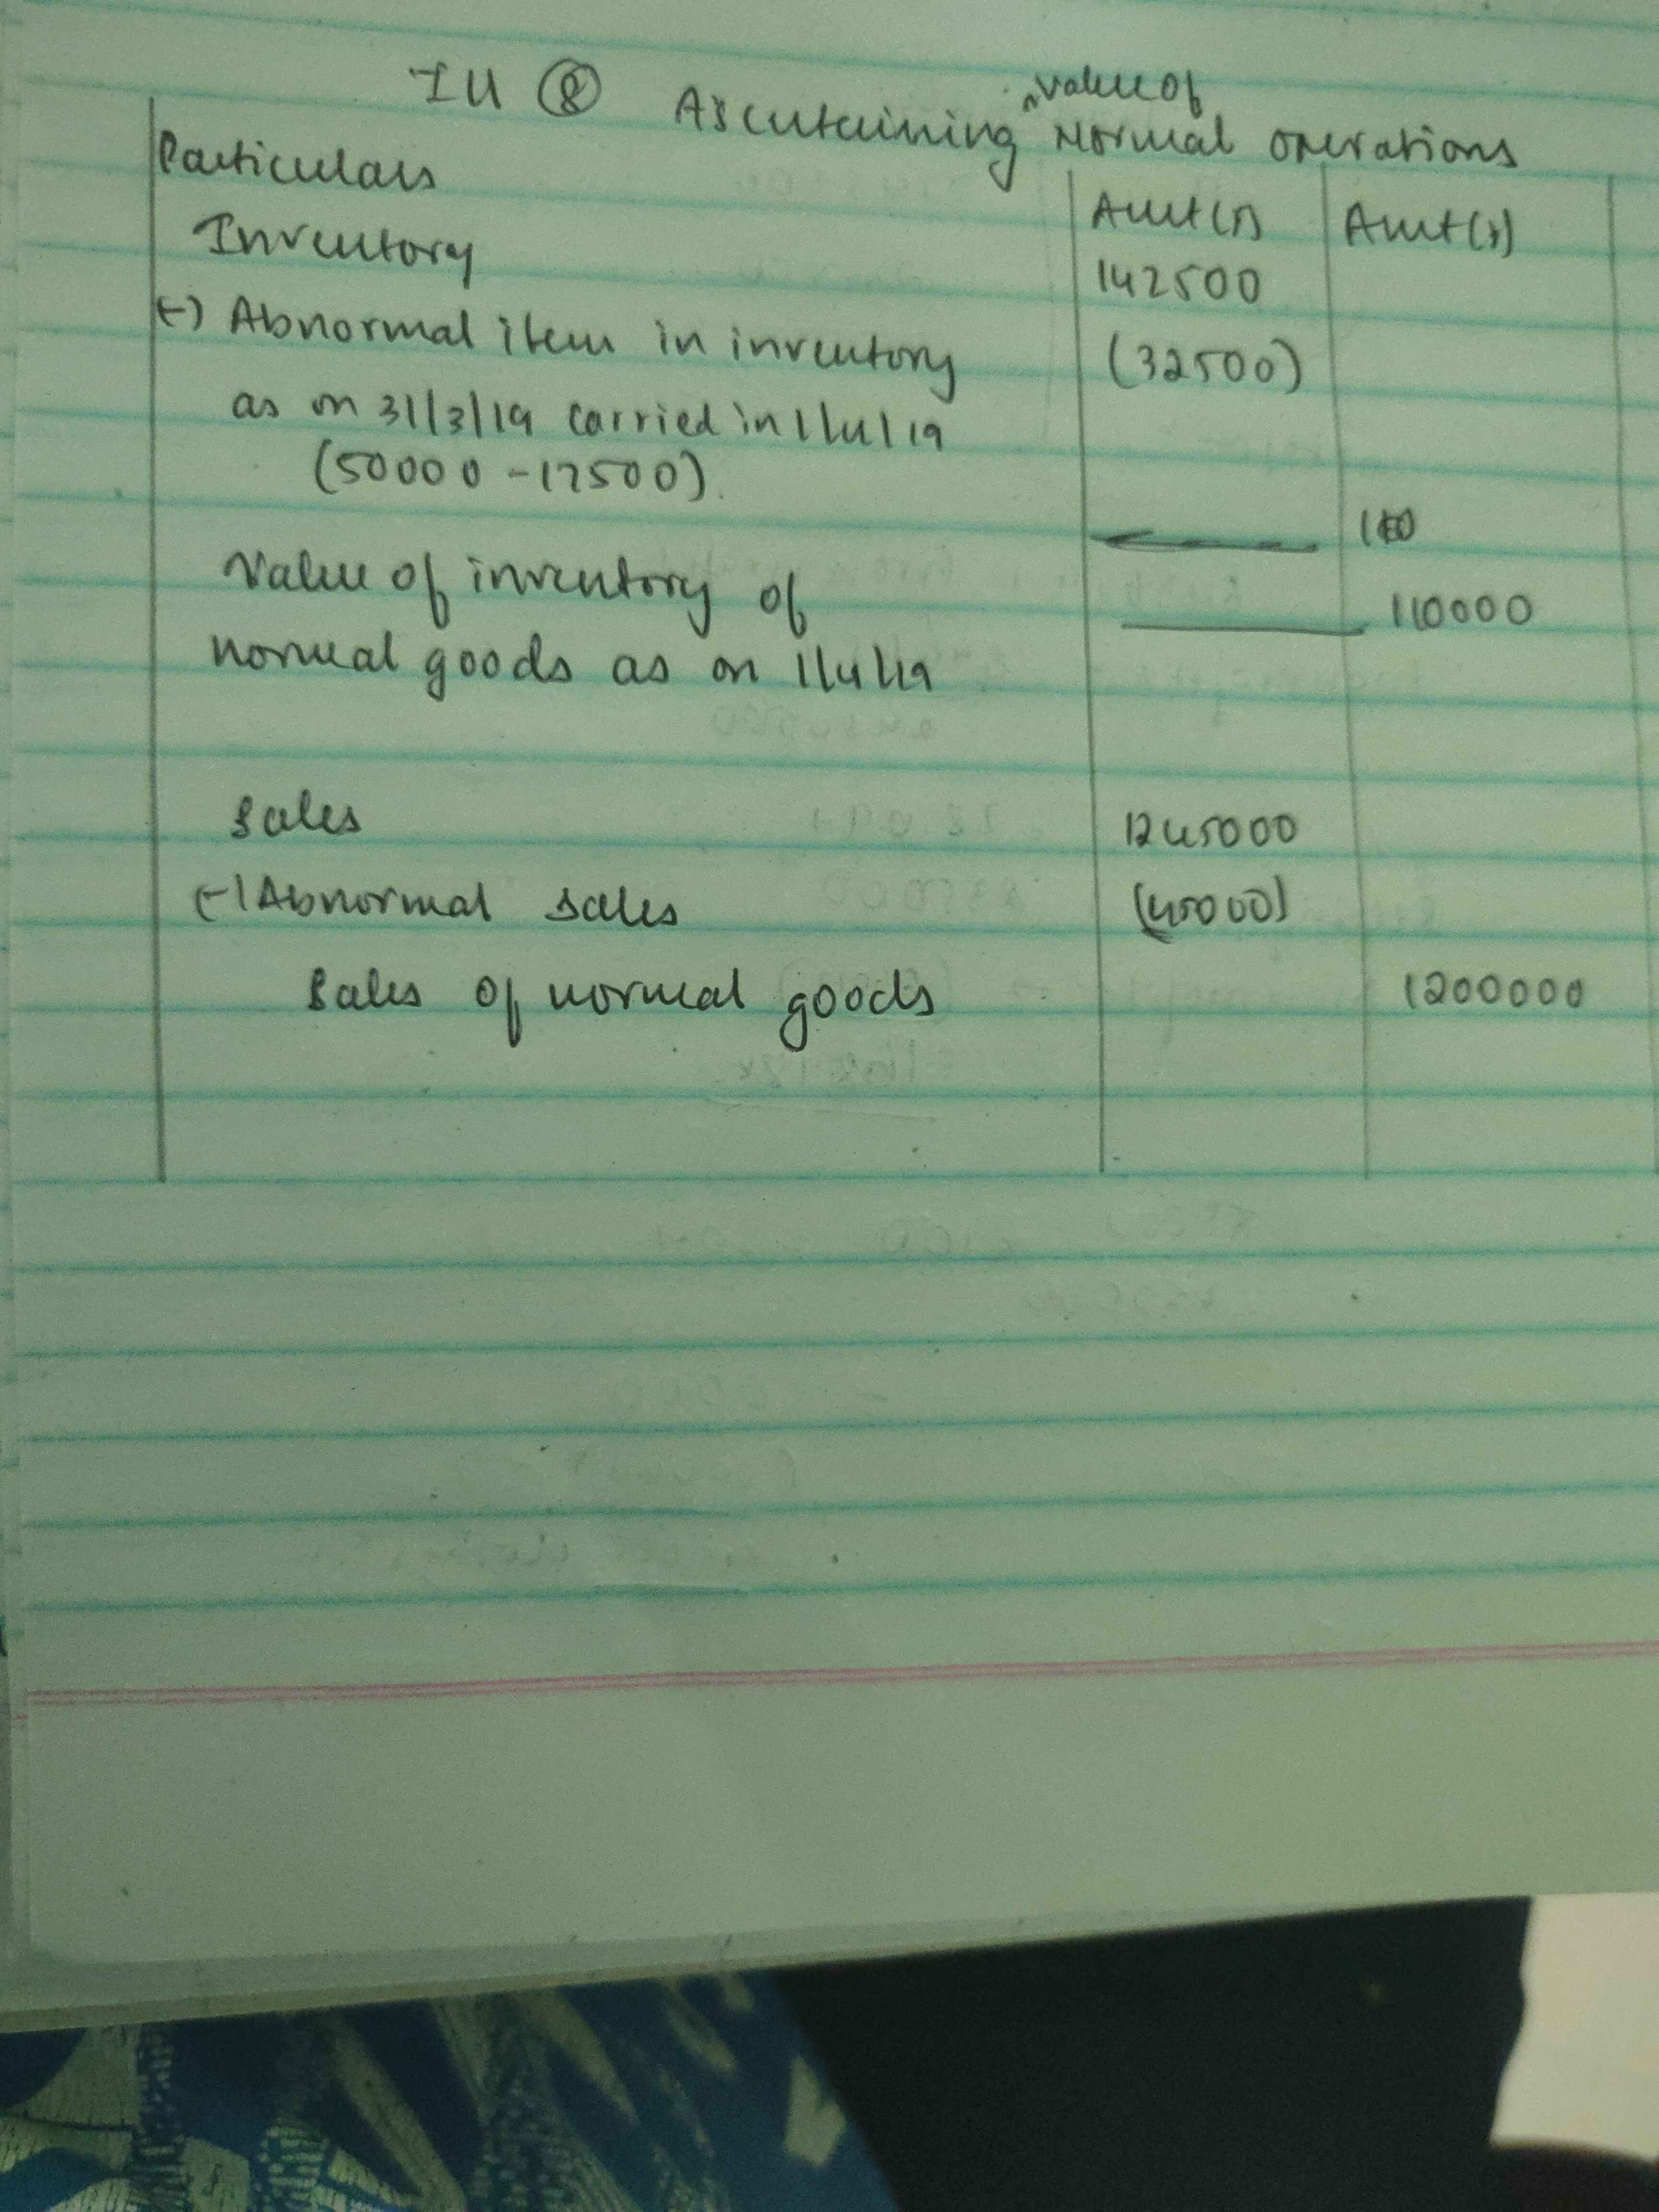 Ill ⑧ Ascertaining value of Normal Operations
Particulars Amt(₹) Amt(₹)
Inventory 142500
(-) Abnormal item in inventory (32500)
as on 31/3/19 carried in 1/4/19
(50000 - 17500).
110
Value of inventory of 110000
normal goods as on 1/4/19
Sales 1245000
(-) Abnormal sales (45000)
Sales of normal goods 1200000